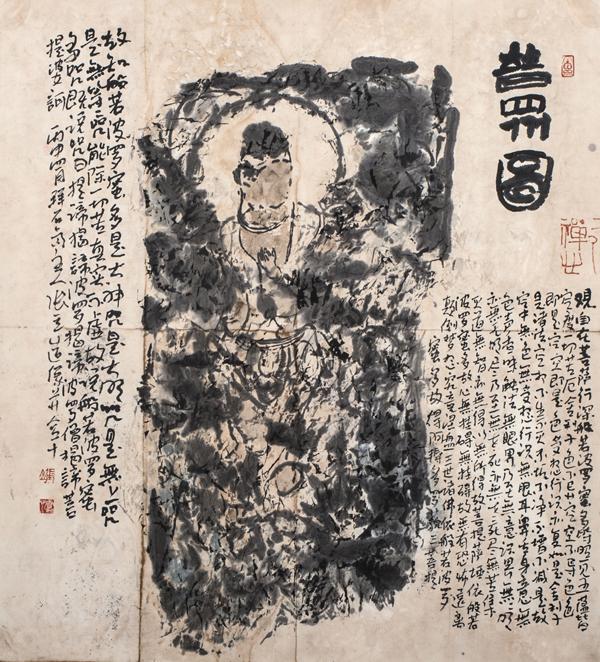 圖
觀自在菩薩行深般若波羅蜜多時照見五蘊皆
空度一切苦厄舍利子色不异空空不异色色
即是空空即是色受想行识亦复如是舍利子
是諸法空相不生不灭不垢不净不增不减是故
空中無色無受想行识無眼耳鼻舌身意無
色声香味触法無眼界乃至無意识界無無明
亦無無明尽乃至無老死亦無老死尽無苦集
灭道無智亦無得以無所得故菩提薩埵依般若
波罗蜜多故心無挂碍無挂碍故無有恐怖远离
颠倒梦想究竟涅槃三世诸佛依般若波罗
蜜多故得阿耨多罗三藐三菩提
故知般若波罗蜜多是大神咒是大明咒是無上咒
是無等等咒能除一切苦真实不虚故说般若波罗蜜
多咒即说咒曰揭諦揭諦波罗揭諦波罗僧揭諦菩
提娑訶 丙申四月